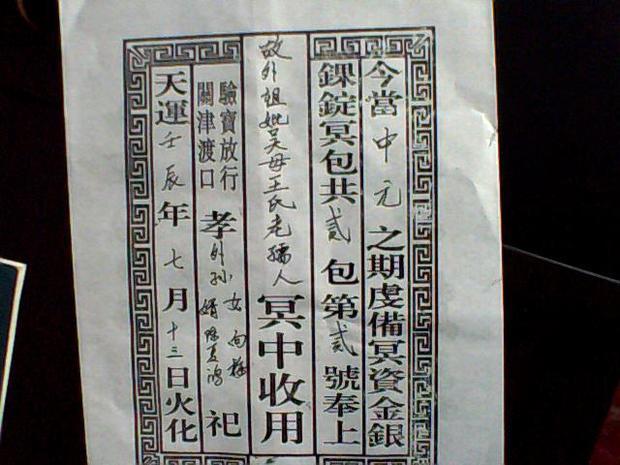 今當中元之期虔備冥資金銀
錁錠冥包共貳包第貳號奉上
故外祖妣吴母王氏老孺人冥中收用
驗寶放行
關津渡口
孝外孫女向
婿陈夏鴻
祀
天運壬辰年七月十三日火化